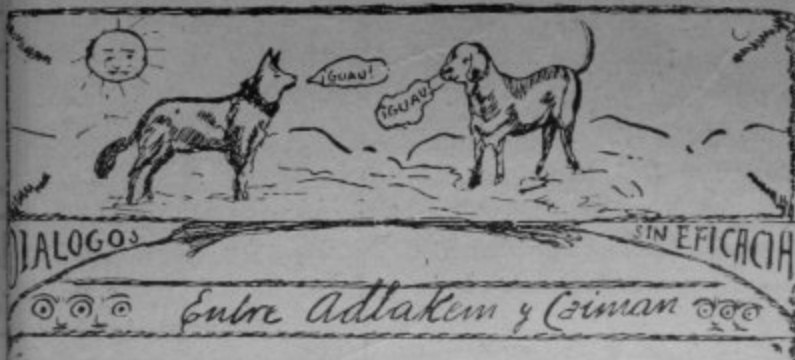 ¡GUAU!
¡GUAU!
DIALOGOS SIN EFICACIA
Entre Adlakem y Caiman